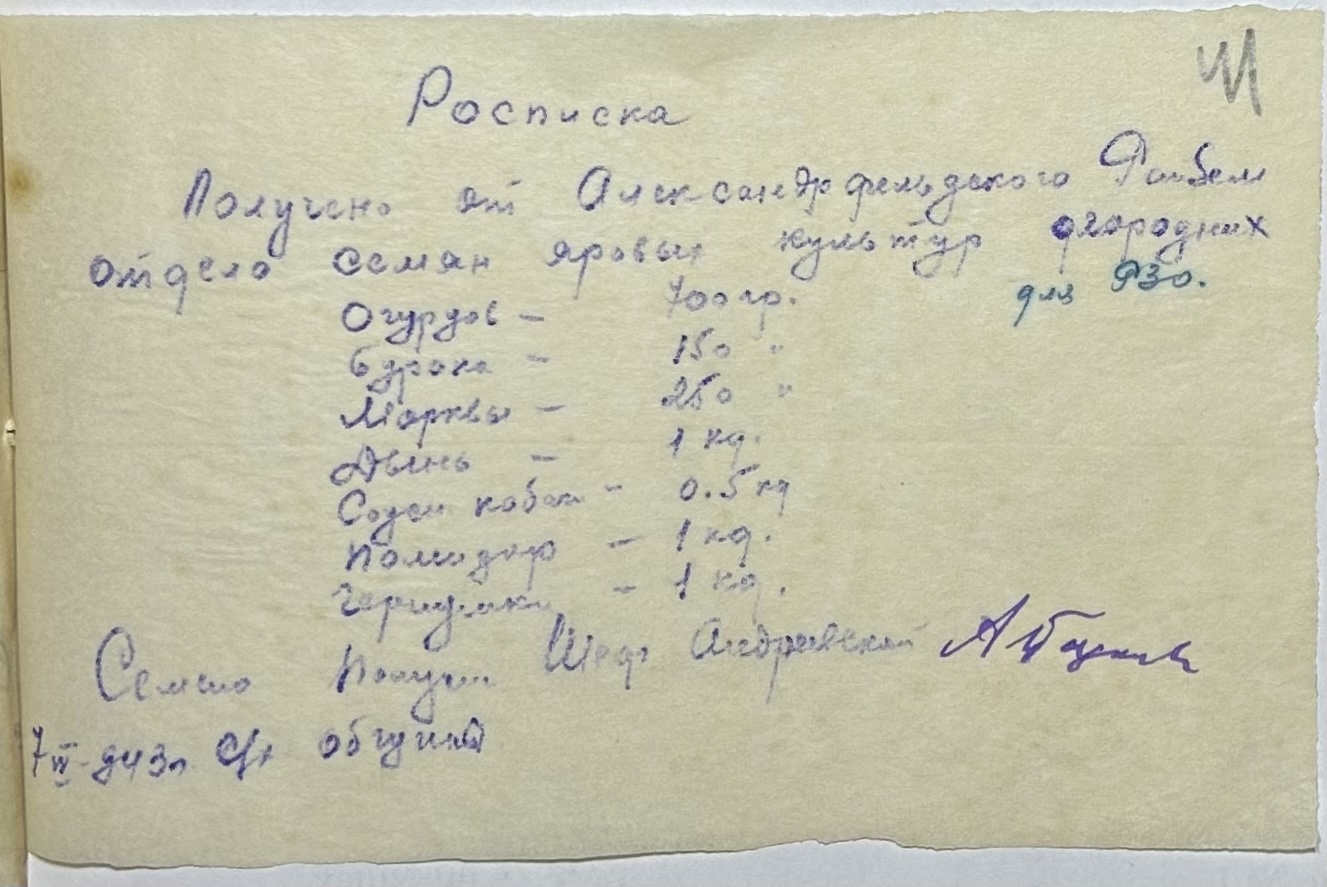 Росписка
Получено от Александрфельдского Райзем
отдела семян яровых культур огородних
для РЗО.
Огурцов – 700 гр.
бурака – 150 "
Морквы – 250 "
Дынь – 1 кг.
Содем кобак – 0.5 кг
помидор – 1 кг.
Семена Получил Шеф Андреевской
7 IV - 943 г. С/х общины